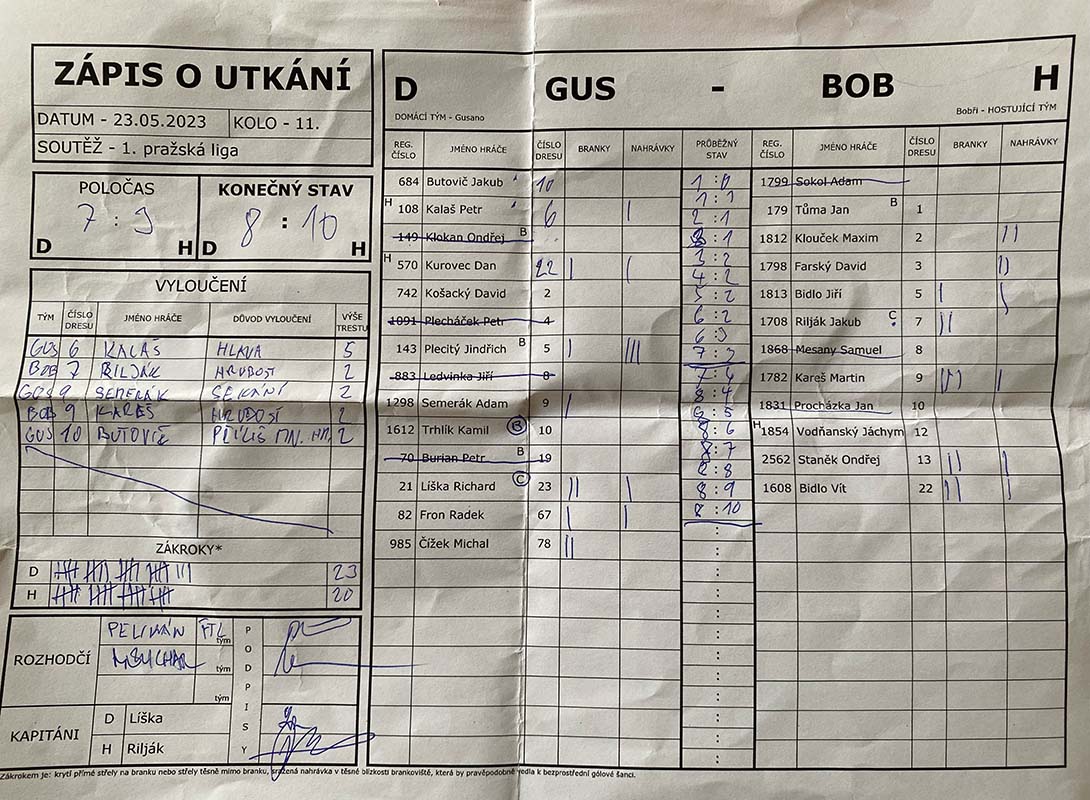 ZÁPIS O UTKÁNÍ
DATUM - 23.05.2023 KOLO - 11.
SOUTĚŽ - 1. pražská liga
POLOČAS KONEČNÝ STAV
7 : 3 8 : 10
D H D H
VYLOUČENÍ
TÝM ČÍSLO DRESU JMÉNO HRÁČE DŮVOD VYLOUČENÍ VÝŠE TRESTU
GUS 6 KALAŠ HLAVA 5
BOB 7 RILJÁK HRUBOST 2
GUS 9 SEMERÁK SEKÁNÍ 2
BOB 9 KAREŠ HRUBOST 2
GUS 10 BUTOVIČ PŘÍLIŠ MN. HR. 2
ZÁKROKY*
D 23
H 20
ROZHODČÍ PELIKÁN FTL tým
tým
tým
PODPISY
KAPITÁNI D Líška
H Rilják
D GUS - BOB H
DOMÁCÍ TÝM - Gusano Bobři - HOSTUJÍCÍ TÝM
REG. ČÍSLO JMÉNO HRÁČE ČÍSLO DRESU BRANKY NAHRÁVKY PRŮBĚŽNÝ STAV REG. ČÍSLO JMÉNO HRÁČE ČÍSLO DRESU BRANKY NAHRÁVKY
684 Butovič Jakub 10 1 : 0 1799 Sokol Adam
1 : 1
H 108 Kalaš Petr 6 | 2 : 1 179 Tůma Jan B 1
149 Klokan Ondřej B 3 : 1 1812 Klouček Maxim 2 ||
3 : 2
H 570 Kurovec Dan 22 | | 4 : 2 1798 Farský David 3 ||
742 Košacký David 2 5 : 2 1813 Bidlo Jiří 5 | |
1091 Plecháček Petr 4 6 : 2 1708 Rilják Jakub C 7 ||
6 : 3
143 Plecitý Jindřich B 5 | ||| 7 : 3 1868 Mesany Samuel 8
883 Ledvinka Jiří 8 1782 Kareš Martin 9 ||| |
8 : 4
1298 Semerák Adam 9 | 8 : 5 1831 Procházka Jan 10
1612 Trhlík Kamil B 10 8 : 6 H 1854 Vodňanský Jáchym 12
8 : 7
70 Burian Petr B 19 8 : 8 2562 Staněk Ondřej 13 || |
21 Líška Richard C 23 || | 8 : 9 1608 Bidlo Vít 22 || |
82 Fron Radek 67 | | 8 : 10
985 Čížek Michal 78 ||
Zákrokem je: krytí přímé střely na branku nebo střely těsně mimo branku, sražená nahrávka v těsné blízkosti brankoviště, která by pravěpodobně vedla k bezprostřední gólové šanci.